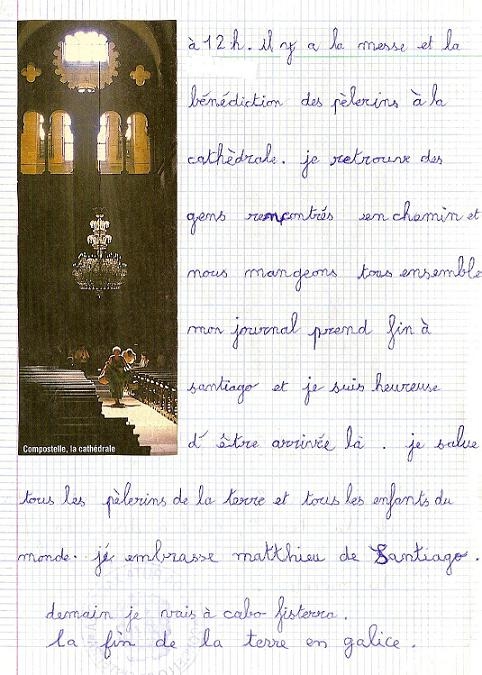 à 12 h. il y a la messe et la
bénédiction des pèlerins à la
cathèdrale. je retrouve des
gens rencontrés en chemin et
nous mangeons tous ensemble
mon journal prend fin à
santiago et je suis heureuse
d'être arrivée là. je salue
Compostelle, la cathédrale
tous les pèlerins de la terre et tous les enfants du
monde. jé embrasse matthieu de Santiago.
demain je vais à cabo fisterra.
la fin de la terre en galice.